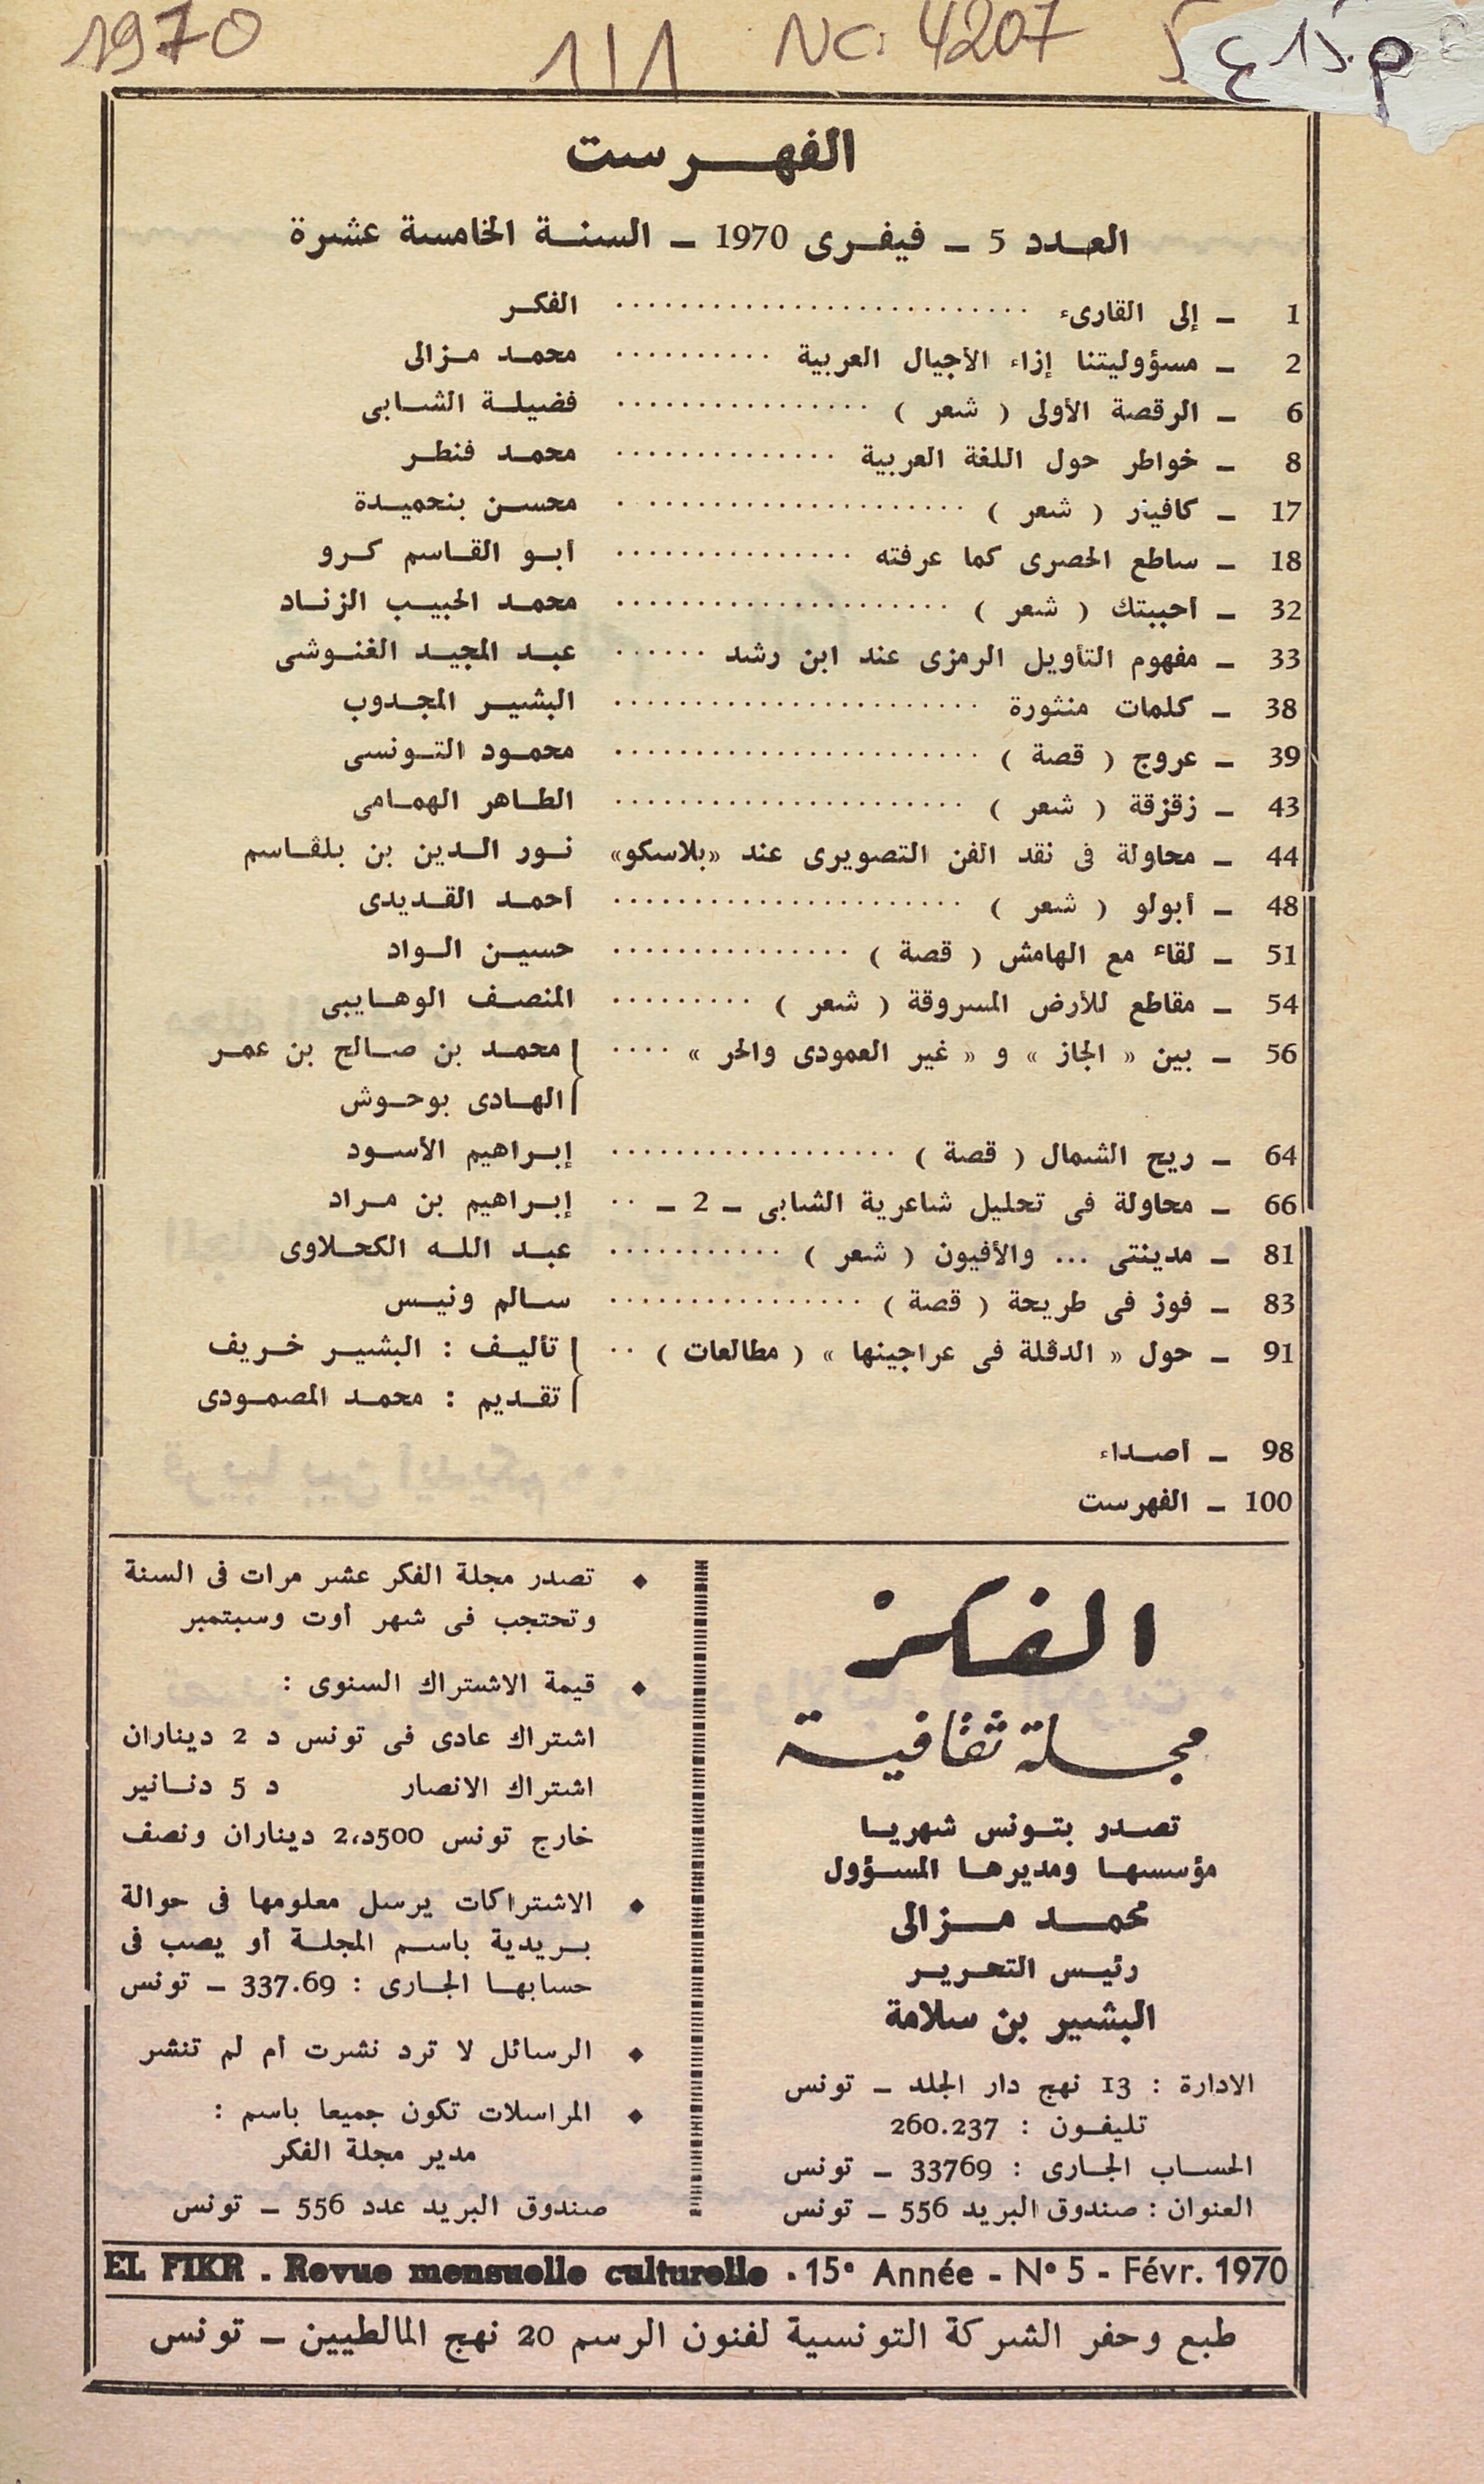 1970
1/1
NC: 4207
الفهرست
العدد 5 ـ فيفرى 1970 ـ السنة الخامسة عشرة
1 ـ إلى القارىء .......................... الفكر
2 ـ مسؤوليتنا إزاء الأجيال العربية .......... محمد مزالى
6 ـ الرقصة الأولى ( شعر ) ................ فضيلة الشابى
8 ـ خواطر حول اللغة العربية .............. محمد فنطر
17 ـ كافينر ( شعر ) ...................... محسن بنحميدة
18 ـ ساطع الحصرى كما عرفته ............... أبو القاسم كرو
32 ـ أحببتك ( شعر ) ..................... محمد الحبيب الزناد
33 ـ مفهوم التأويل الرمزى عند ابن رشد ...... عبد المجيد الغنوشى
38 ـ كلمات منثورة ....................... البشير المجدوب
39 ـ عروج ( قصة ) ....................... محمود التونسى
43 ـ زقزقة ( شعر ) ...................... الطاهر الهمامى
44 ـ محاولة فى نقد الفن التصويرى عند «بلاسكو» نور الدين بن بلقاسم
48 ـ أبولو ( شعر ) ...................... أحمد القديدى
51 ـ لقاء مع الهامش ( قصة ) ............... حسين الواد
54 ـ مقاطع للأرض المسروقة ( شعر ) ......... المنصف الوهايبى
56 ـ بين « الجاز » و « غير العمودى والحر » .... محمد بن صالح بن عمر
الهادى بوحوش
64 ـ ريح الشمال ( قصة ) .................. إبراهيم الأسود
66 ـ محاولة فى تحليل شاعرية الشابى ـ 2 ـ .. إبراهيم بن مراد
81 ـ مدينتى ... والأفيون ( شعر ) ........... عبد الله الكحلاوى
83 ـ فوز فى طريحة ( قصة ) ................ سالم ونيس
91 ـ حول « الدڤلة فى عراجينها » ( مطالعات ) .. تأليف : البشير خريف
تقديم : محمد المصمودى
98 ـ أصداء
100 ـ الفهرست
الفكر
مجلة ثقافية
تصدر بتونس شهريا
مؤسسها ومديرها المسؤول
محمد مزالى
رئيس التحرير
البشير بن سلامة
الادارة : 13 نهج دار الجلد ـ تونس
تليفون : 260.237
الحساب الجارى : 33769 ـ تونس
العنوان : صندوق البريد 556 ـ تونس
♦ تصدر مجلة الفكر عشر مرات فى السنة
وتحتجب فى شهر أوت وسبتمبر
♦ قيمة الاشتراك السنوى :
اشتراك عادى فى تونس د 2 ديناران
اشتراك الانصار د 5 دنانير
خارج تونس 500د،2 ديناران ونصف
♦ الاشتراكات يرسل معلومها فى حوالة
بريدية باسم المجلة أو يصب فى
حسابها الجارى : 337.69 ـ تونس
♦ الرسائل لا ترد نشرت أم لم تنشر
♦ المراسلات تكون جميعا باسم :
مدير مجلة الفكر
صندوق البريد عدد 556 ـ تونس
EL FIKR . Revue mensuelle culturelle . 15e Année - N° 5 - Févr. 1970
طبع وحفر الشركة التونسية لفنون الرسم 20 نهج المالطيين ـ تونس